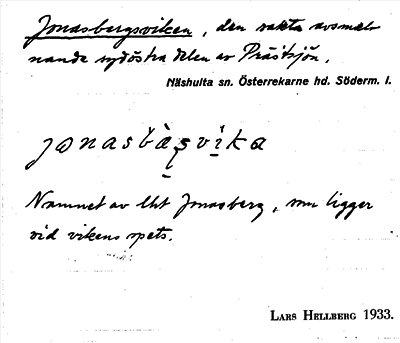 Jonasbergsviken, den sakta avsmal-
nande sydöstra delen av Prästsjön.
Näshulta sn. Österrekarne hd. Söderm. l.
jonasbàʂvika
Namnet av lht Jonasberg, som ligger
vid vikens spets.
LARS HELLBERG 1933.